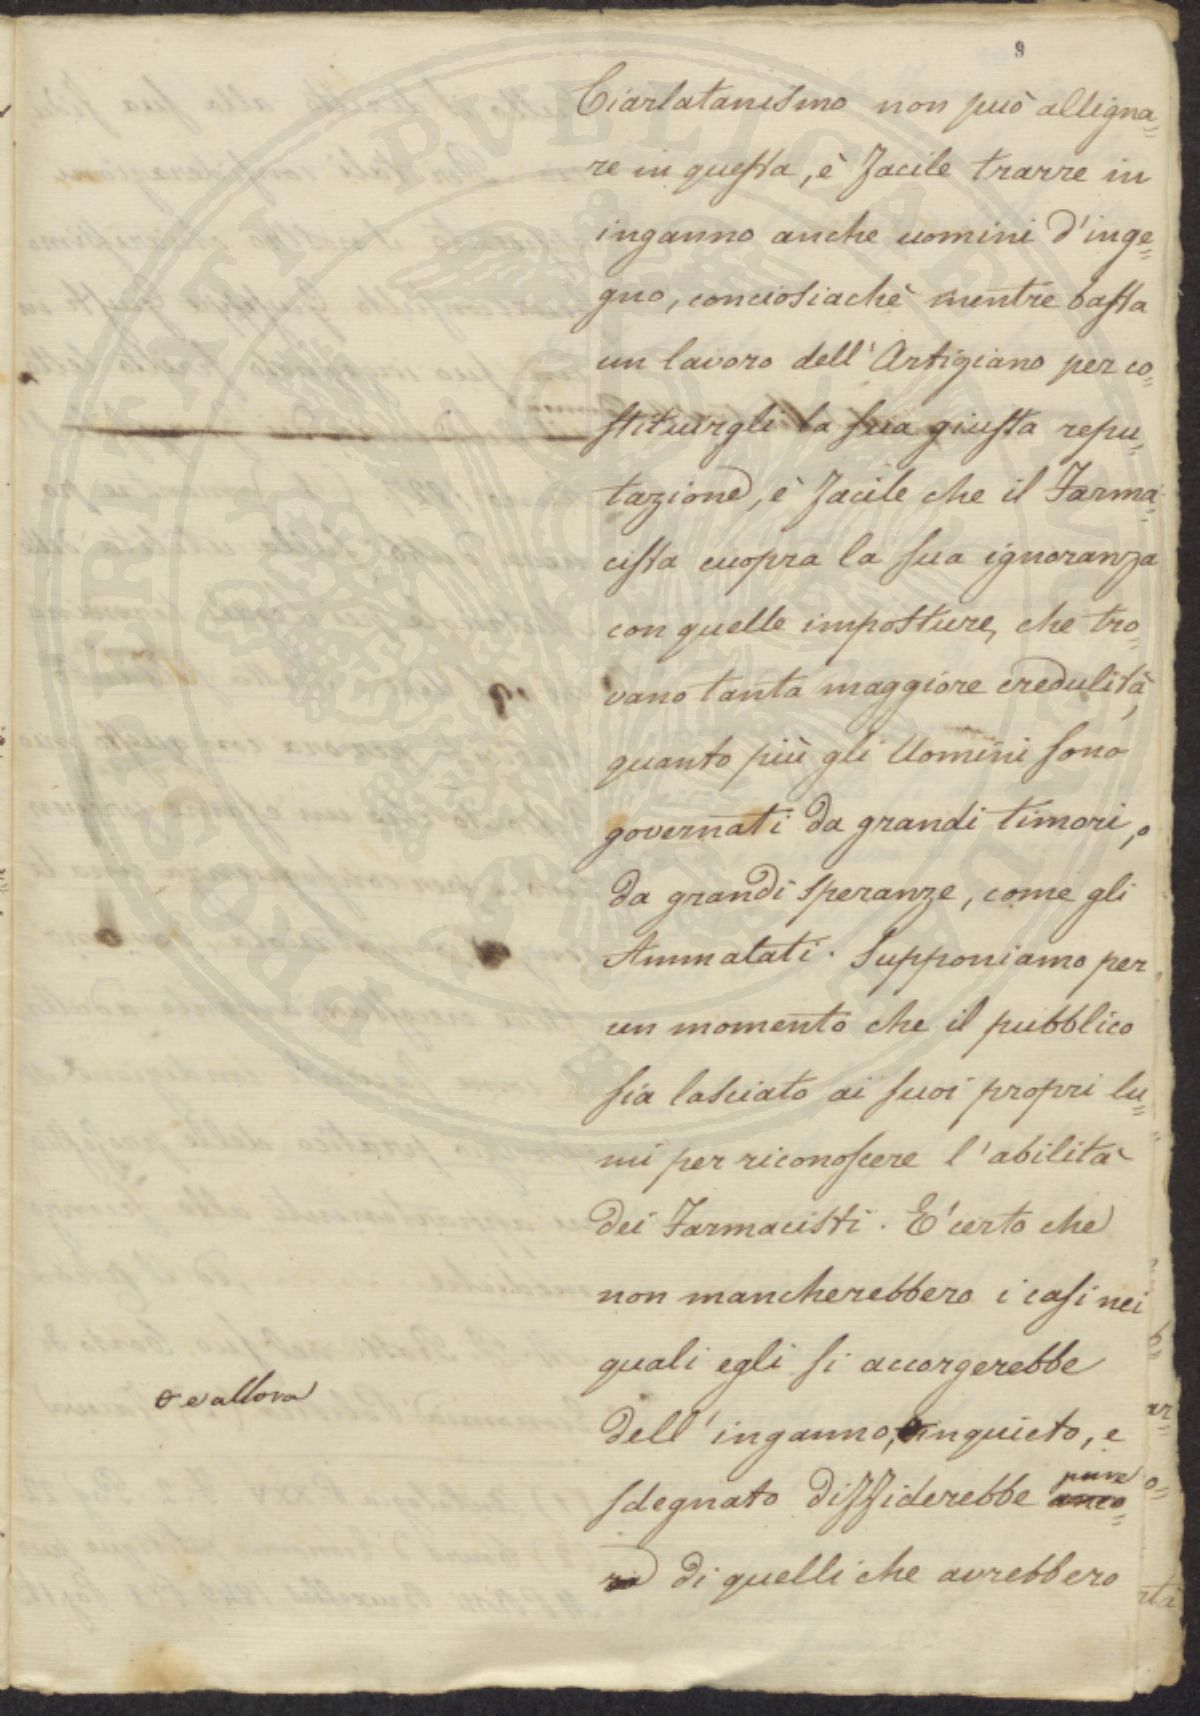 9
Ciarlatanismo non può alligna=
re in questa, è facile trarre in
inganno anche uomini d'inge=
gno, conciosiachè mentre basta
un lavoro dell'Artigiano per co=
stituirgli la sua giusta repu=
tazione, è facile che il Farma=
cista cuopra la sua ignoranza
con quelle imposture, che tro=
vano tanta maggiore credulità,
quanto più gli Uomini sono
governati da grandi timori, o
da grandi speranze, come gli
Ammalati. Supponiamo per
un momento che il pubblico
sia lasciato ai suoi propri lu=
mi per riconoscere l'abilità
dei Farmacisti. E' certo che
non mancherebbero i casi nei
quali egli si accorgerebbe
e allora
dell'inganno, inquieto, e
sdegnato diffiderebbe pure anco=
ra di quelli che avrebbero